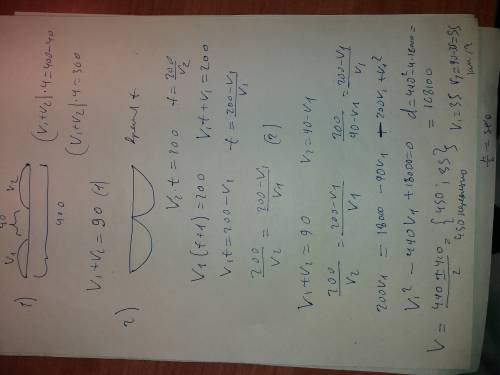 1)
V1 40 V2
400
(V1+V2)·4=400-40
(V1+V2)·4=360
V1+V2=90 (1)
2)
время t
V2·t=200 t=200/V2
V1(t+1)=200 V1t+V1=200
V1t=200-V1 t=200-V1/V1
200/V2 = 200-V1/V1 (2)
V1+V2=90 V2=90-V1
200/V2 = 200-V1/V1 200/90-V1 = 200-V1/V1
200V1 = 1800-90V1 -200V1+V1²
V1²-490V1+18000=0 d=490²-4·18000=
=168100
V= 490±410/2 = {450; 35} V1=35 V2=90-35=55